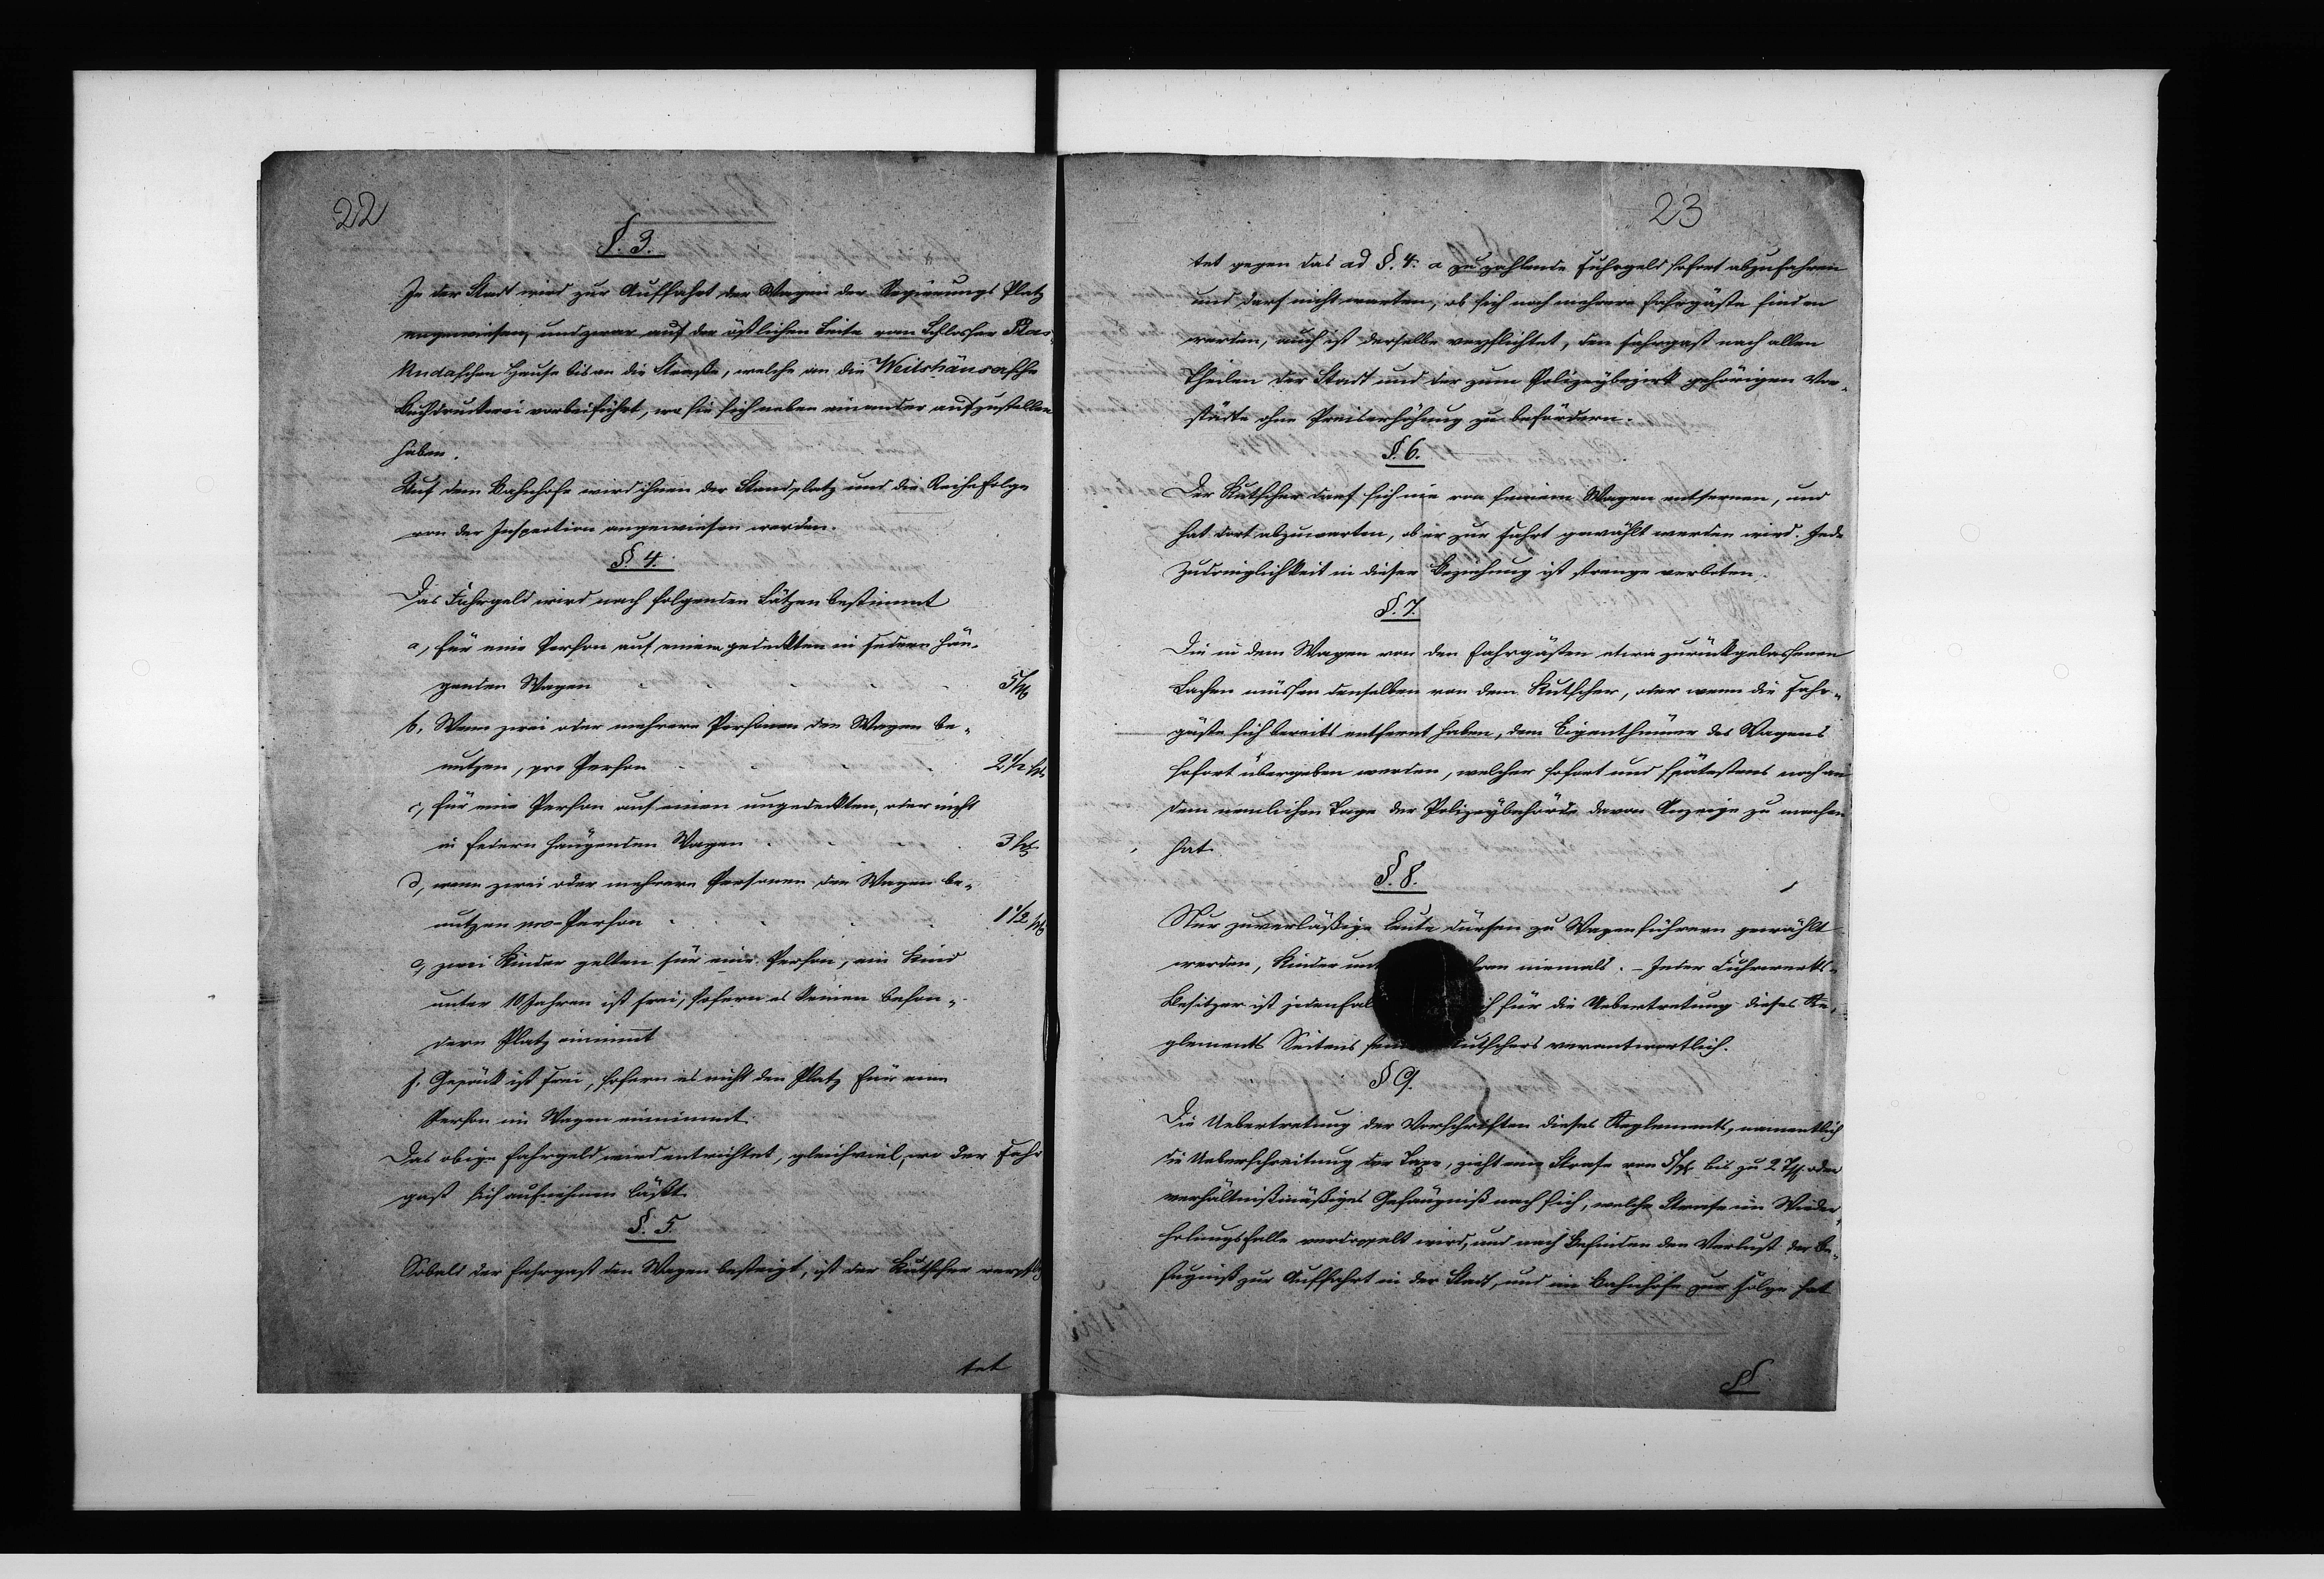 22
§. 3.
In der Stadt wird zur Auffahrt der Wagen der Regierungs Platz
angewiesen, und zwar auf der östlichen Seite vom Schlosser
schen Hause bis an die Straße, welche an die Weilshäusersche
Buchdruckerei vorbeiführt, wo sie sich neben einander aufzustellen
haben.
Auf dem Bahnhofe wird ihnen der Standplatz und die Reihefolge
von der Inspection angewiesen werden.
§. 4.
Das Fuhrgeld wird nach folgenden Sätzen bestimmt
a, für eine Person auf einem gedeckten in Federn hän-
genden Wagen 5 Sg
b, Wenn zwei oder mehrere Personen den Wagen be-
nutzen, pro Person 2 1/2 Sg
c, für eine Person auf einen ungedeckten, oder nicht
in Federn hängenden Wagen 3 Sg
d, wenn zwei oder mehrere Personen den Wagen be-
nutzen pro Person 1 1/2 Sg
e, zwei Kinder gelten für eine Person, ein Kind
unter 10 Jahren ist frei, sofern es keinen beson-
dern Platz einimmt
f, Gepäck ist frei, sofern es nicht den Platz für eine
Person im Wagen einnimmt.
Das obige Fahrgeld wird entrichtet, gleichviel, wo der Fahr
gast sich aufnehmen läßt.
§. 5.
Sobald der Fahrgast den Wagen besteigt, ist der Kutscher verpflich
tet
23
tet gegen das ad §. 4. a zu zahlende Fuhrgeld sofort abzufahren
und darf nicht warten, ob sich noch mehrere Fahrgäste finden
werden, auch ist derselbe verpflichtet, den Fahrgast nach allen
Theilen der Stadt und der zum Polizeybezirk gehörigen Vor-
städte ohne Preiserhöhung zu befördern.
§. 6.
Der Kutscher darf sich nie von seinem Wagen entfernen, und
hat dort abzuwarten, ob er zur Fahrt gewählt werden wird. Jede
Zudringlichkeit in dieser Beziehung ist strenge verboten.
§. 7.
Die in dem Wagen von den Fahrgästen etwa zurückgelassenen
Sachen müssen denselben von dem Kutscher, oder wenn die Fahr-
gäste sich bereits entfernt haben, dem Eigenthümer des Wagens
sofort übergeben werden, welcher sofort und spätestens noch an
dem nemlichen Tage der Polizeybehörde davon Anzeige zu machen
hat.
§. 8.
Nur zuverläßige Leute dürfen zu Wagenführern gewählt
werden, Kinder niemals. - Jeder Fuhrwerks-
Besitzer ist für die Uebertretung dieses Re-
glements Seitens Kutschers verantwortlich.
§ 9.
Die Uebertretung der Vorschriften dieses Reglements, namentlich
die Ueberschreitung der Taxe, zieht eine Strafe von 5 Sg bis zu 2 Th oder
verhältnißmäßiges Gefängniß nach sich, welche Strafe im Wieder
holungsfalle verdoppelt wird, und nach Befinden den Verlust der Be-
fugniß zur Auffahrt in der Stadt, und im Bahnhofe zur Folge hat
§